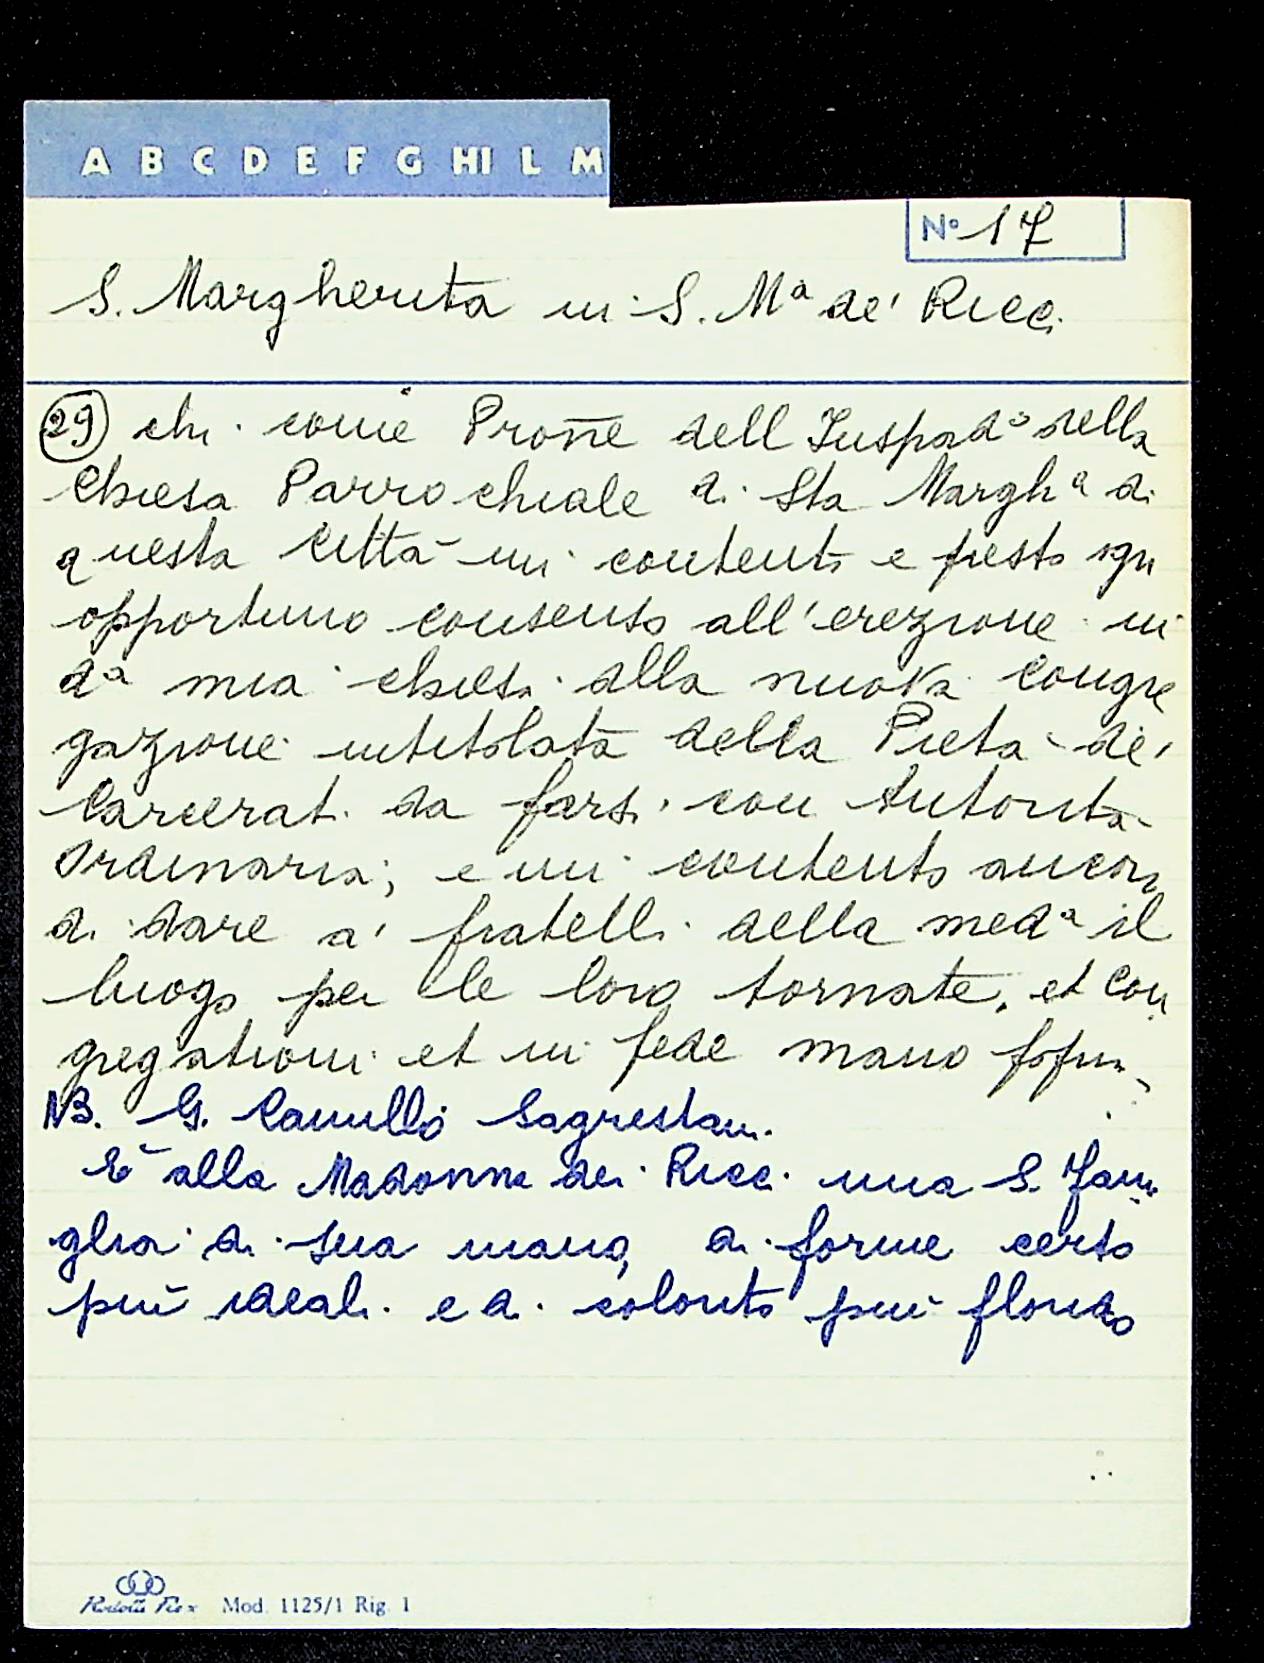 A B C D E F G HI L M
N° 17
S. Margherita in S. Mª de' Ricci
29 chi come Prone dell Iuspadº della
Chiesa Parrochiale di Sta Marghª di
questa Città mi contento e presto ogni
opportuno consenso all'erezione in
dª mia chiesa alla nuova Congre
gazione intitolata della Pietà de'
Carcerati da farsi con Autorità
Ordinaria; e mi contento ancora
di dare a' fratelli della medª il
luogo per le loro tornate, et con
gregationi et in fede mano
NB. G. Camillo Sagrestani
È alla Madonna dei Ricci una S. Fami
glia di sua mano, di forme certo
più ideali e di colorito più florido
Mod. 1125/1 Rig. 1